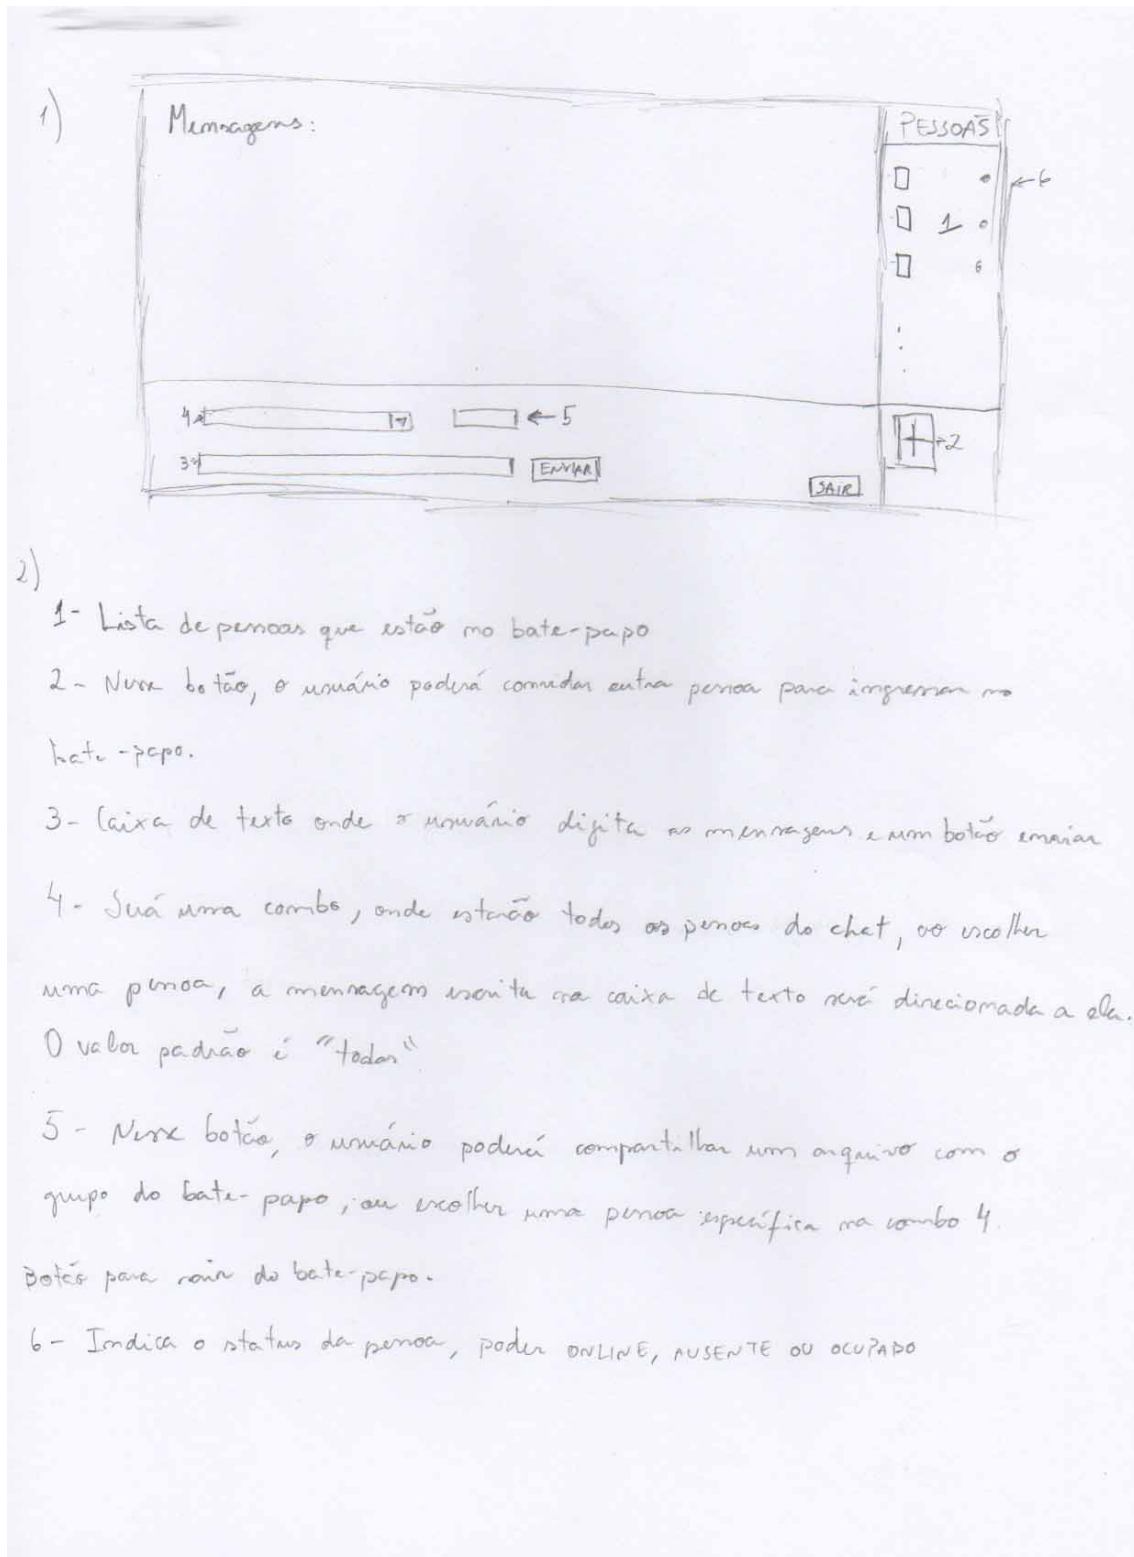 1)
Mensagens:
PESSOAS
←6
1
4→
←5
3→
ENVIAR
→2
SAIR
2)
1- Lista de pessoas que estão no bate-papo
2- Nesse botão, o usuário poderá convidar outra pessoa para ingressar no
bate-papo.
3- Caixa de texto onde o usuário digita as mensagens e um botão enviar
4- Será uma combo, onde estarão todas as pessoas do chat, ao escolher
uma pessoa, a mensagem escrita na caixa de texto será direcionada a ela.
O valor padrão é "todos"
5- Nesse botão, o usuário poderá compartilhar um arquivo com o
grupo do bate-papo, ou escolher uma pessoa específica na combo 4.
Botão para sair do bate-papo.
6- Indica o status da pessoa, poder ONLINE, AUSENTE OU OCUPADO